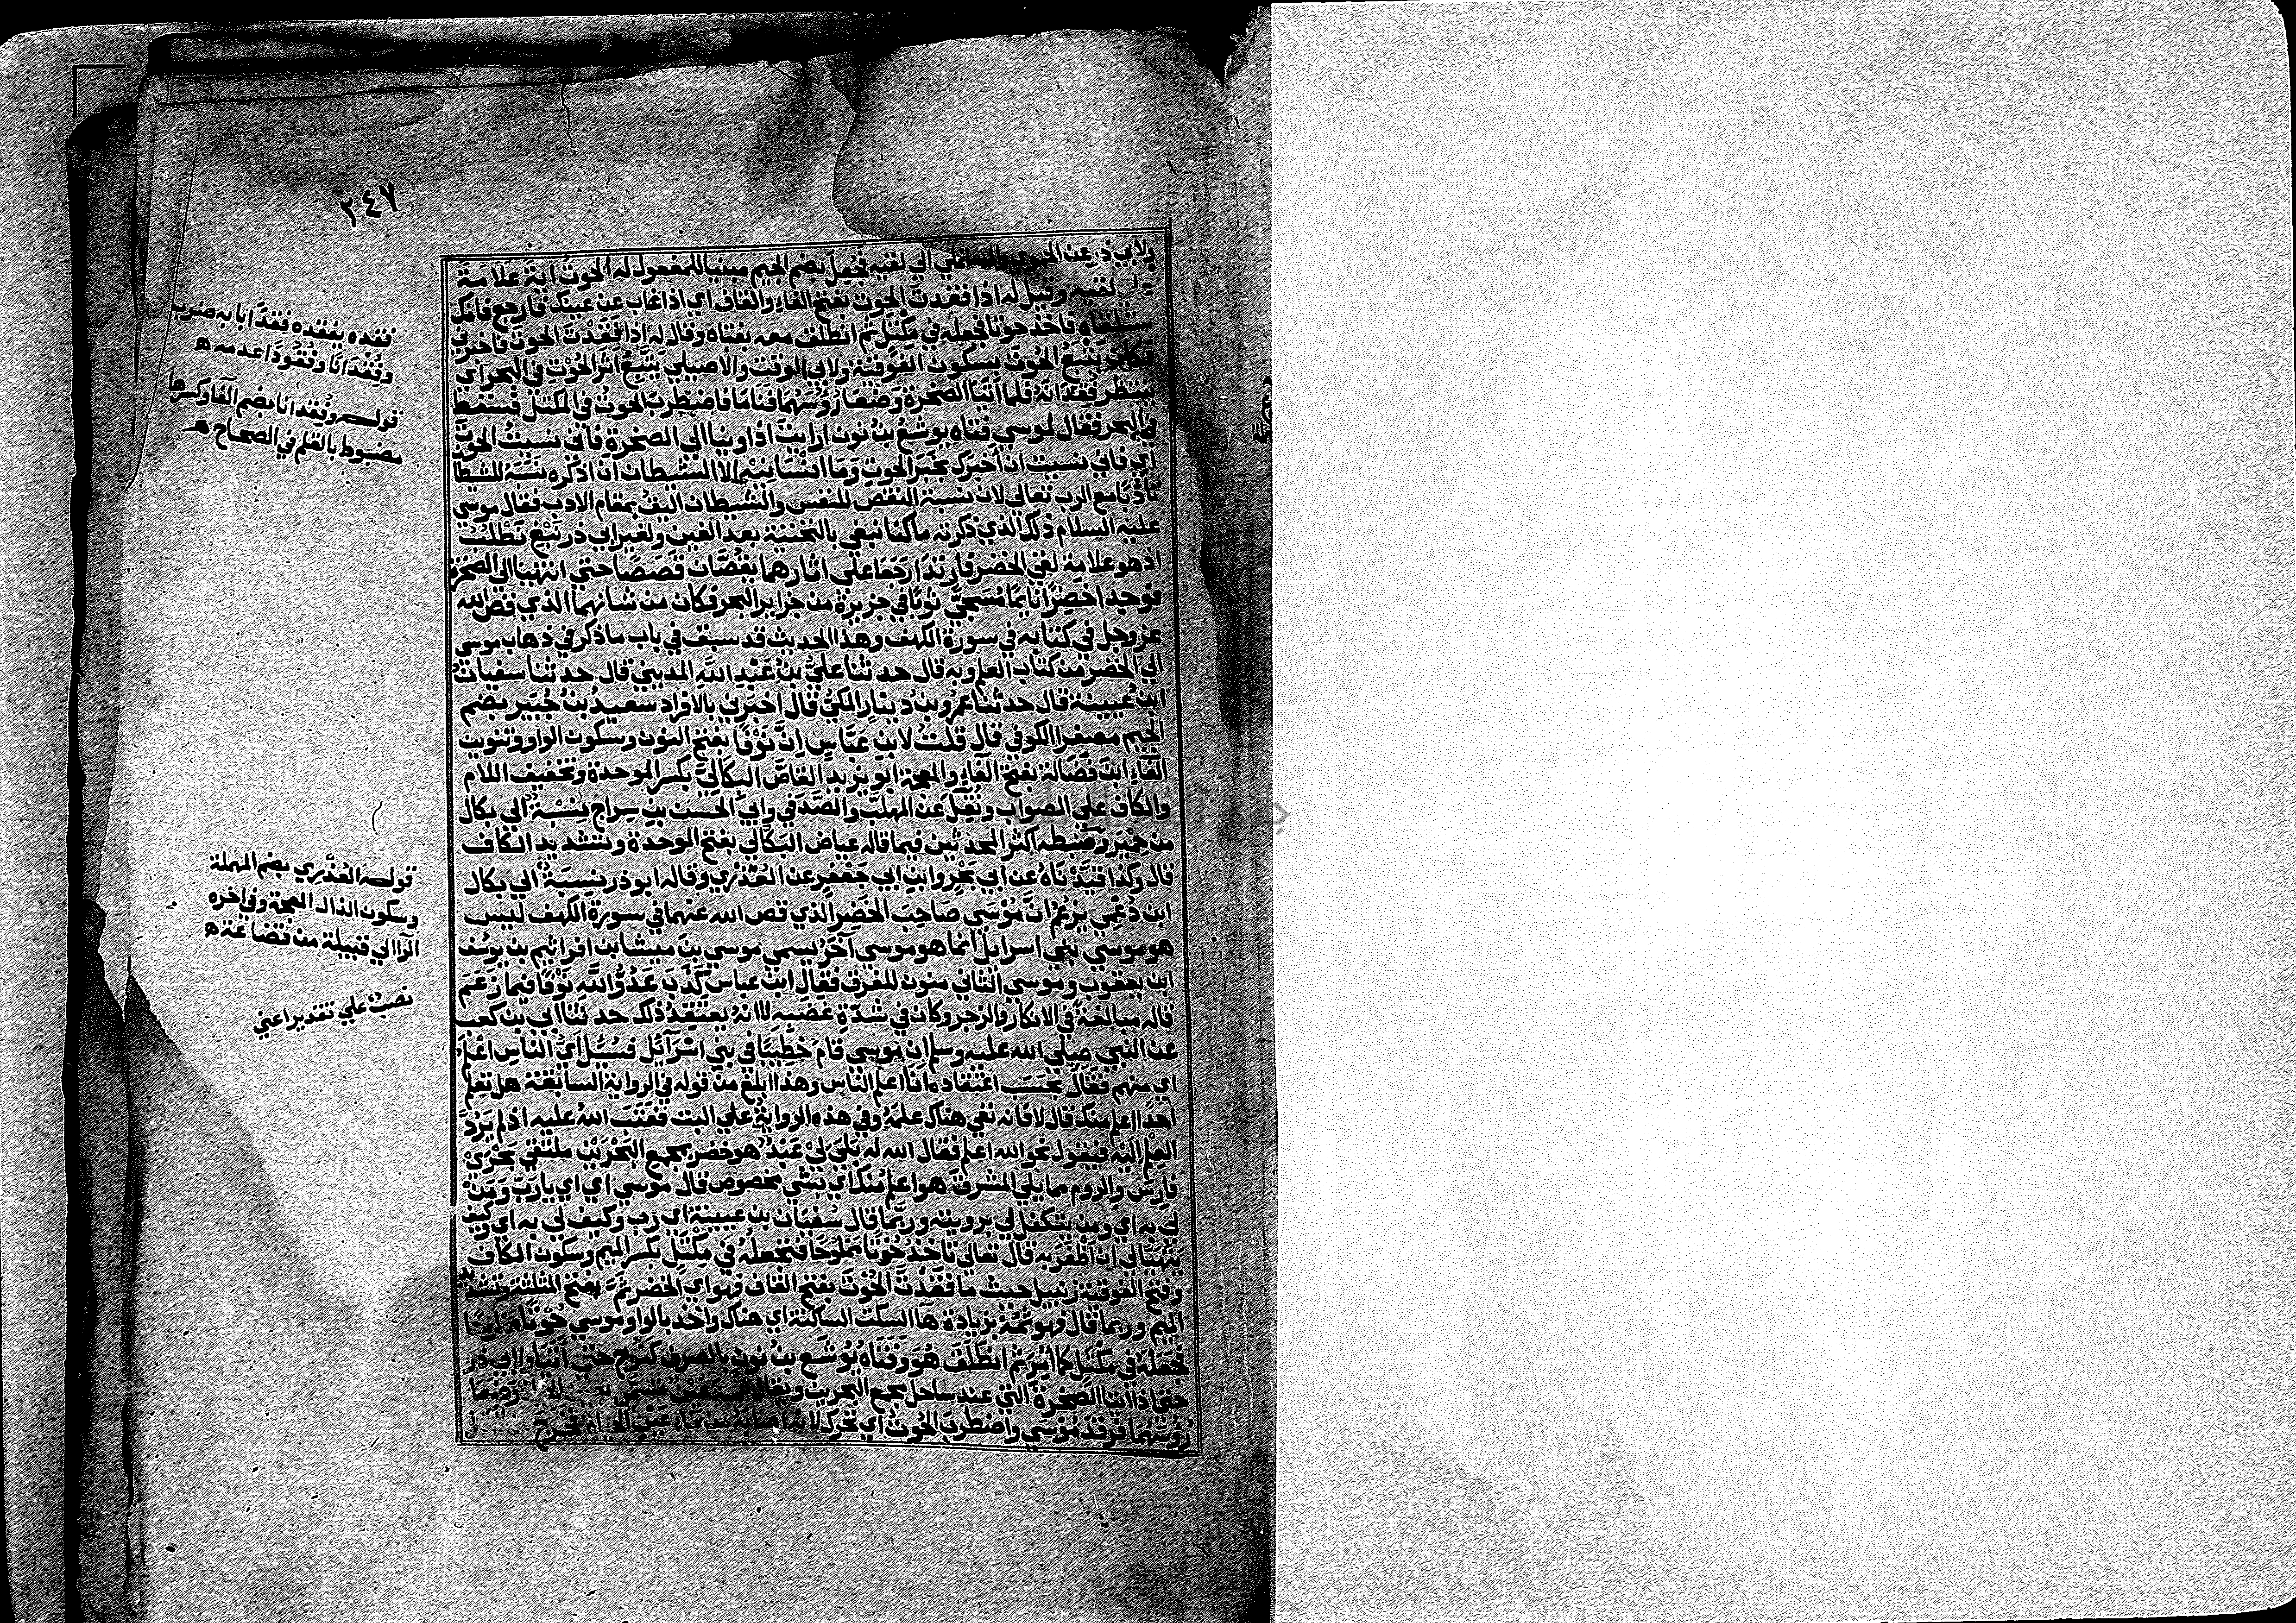 ٢٤٧
ولابي ذر عن الحموي والمستملي الي لقيه فجُعِلَ بضم الجيم مبنيا للمفعول له الحوتُ ايةً علامةً
لقيه وقيل له اذا فقدتَ الحوتَ بفتح الفاء والقاف اي اذا غاب عن عينك فارجع فانك
ستلقاه فاخذ حوتا فجعله في مِكْتَل ثم انطلق معه بفتاه وقال له اذا فَقَدْتَ الحوتَ فاخبرني
فكان يَتْبَعُ الحُوتَ بسكون الفوقية ولابي الوقت والاصيلي يَتَّبِعُ اثَرَ الحُوْتِ في البحر اي
ينتظر فِقْدَانَهُ فلما اتَيَا الصخرةَ وَضَعَا رُؤُسَهُما فَنَامَا فاضطربَ الحوتُ في المكتل فسقط
في البحر فقال لموسي فتاه يوشعُ بنُ نون ارايتَ اذ اوينا الي الصخرة فاني نسيتُ الحوتَ
اي فاني نسيت ان اُخبرك بخبَر الحوتِ وَمَا انسَانِيْهِ الا الشيطان ان اذكره نسَبَهُ للشيطا
تأدُّبًا مع الرب تعالي لان نسبة النقص للنفس والشيطان اليقُ بمقام الادب فقال موسي
عليه السلام ذلك الذي ذكرته ما كنا نبغي بالتحتية بعد الغين ولغير ابي ذر نَبْغِ نَطْلُبُ
اذ هو علامة لقي الخضر فارتدا رَجَعَا علي اثارهما يقُصَّان قَصَصًا حتي انتهيا الي الصخرة
فوجدا خضرًا نايمًا مُسَجيًّ ثوبًا في جزيرة من جزاير البحر فكان من شانهما الذي قص الله
عز وجل في كتابه في سورة الكهف وهذا الحديث قد سبق في باب ما ذكر في ذهاب موسي
الي الخضر من كتاب العلم وبه قال حدثنا عليُّ بنُ عَبْدِ اللَّهِ المديني قال حدثنا سفيانُ
ابنُ عُيينة قال حدثنا عَمرو بن دينارٍ المكيُّ قال اخبَرَني بالافراد سعيدُ بنُ جُبَيرٍ بضم
الجيم مصغرا الكوفي قال قلتُ لابنِ عَبَّاسٍ اِنَّ نَوْفًا بفتح النون وسكون الواو وتنوين
الفاء ابنَ فَضَالة بفتح الفاء والمعجمة ابو يزيد القاصَّ البِكَالِيَّ بكسر الموحدة وتخفيف اللام
والكاف علي الصواب ونُقِلَ عن المهلَّب والصَّدَفي وابي الحسن بن سراج نِسْبَةً الي بكال
من حِمْيَر وضبطه اكثر المحدثين فيما قاله عياض البَكَّالي بفتح الموحدة وتشديد الكاف
قال وكذا قيَّدْنَاهُ عن ابي بَحْرٍ وابنِ ابي جَعْفَرٍ عن العُذْرِي وقاله ابو ذر نِسبَةً الي بكال
ابن دُعْمِي يزعُمُ انَّ مُوْسَي صَاحِبَ الخَضِرِ الذي قص الله عنهما في سورة الكهف ليس
هو موسي بني اسرايل انما هو موسي آخَرُ يسمي موسي بنَ ميشا بن افراثيم بن يوسُف
ابن يعقوب وموسي الثاني منون للفرق فقال ابن عباس كَذَبَ عَدُوُّ اللَّهِ نَوْفًا فيما زعَمَ
قاله مبالغةً في الانكار والزجر وكان في شدةِ غضبِهِ لا انهُ يعتقِدُ ذلك حدثنا ابي بن كعب
عن النبي صلي الله عليه وسلم ان موسي قام خَطِيبًا في بني اسْرَآئِلَ فسُئِلَ ايُّ الناس اعْلَمُ
اي منهم فقال بحَسَب اعتقاده انا اعلم الناس وهذا ابلغ من قوله في الرواية السابقة هل تعلم
احدا اعلم منك قال لا فانه نفي هناك علمَهُ وفي هذه الروايةِ علي البت فعَتَبَ اللهُ عليه اذ لم يَرُدَّ
العِلْمَ الَيْهِ فيقول نحو الله اعلم فقال الله له بَلَي لِيْ عَبْدٌ هو خضر بمجمع البَحْرَيْنِ ملتقي بَحْرَيْ
فارس والروم مما يلي المشرق هو اعلم منك اي بشي مخصوص قال موسي اي اي يا رَبِّ وَمَنْ
لي به اي ومن يتكفل لي برويته وربَّما قال سُفيَان بن عيينة اي رَبِّ وكيف لي به اي كيف
يتهيَّا لي ان اظفَرَ به قال تعالي تاخُذُ حُوْتًا مملوحًا فتجعلهُ في مِكْتَلٍ بكسر الميم وسكون الكاف
وفتح الفوقية زنبيل حيث ما فَقَدْتَ الحُوْتَ بفتح القاف فهو اي الخضر ثَمَّ بفتح المثلثة وتشديد
الميم وربما قال فهو ثَمَّهْ بزيادة هآ السكت الساكنة اي هناك واخذ بالواو موسي حُوْتًا مملوحًا
فجَعَلَهُ في مِكْتَلٍ كما اُمِرَ ثم انطَلَقَ هُوَ وَفَتَاهُ يُوْشَع بنُ نونٍ بالصرف كنُوح حتي اتَيَا ولابي ذر
حتي اذا اتيا الصَّخْرةَ التي عند ساحل مجمع البحرين ويقال ثمة عين تسمي وَضَعَا
رُؤُسَهُمَا فرقَدَ مُوْسَي واضطربَ الحُوْتُ اي تحرك لانه اصابه من مآء عَيْنِ الحياة فخَرَجَ
فقده يفقده فقدًا بابه ضرب
وفِقْدَانًا وفُقُودًا عَدِمه ه
قوله وفقدانا بضم الفا وكسرها
مضبوط بالقلم في الصحاح ه
قوله العُذْرِي بضم المهملة
وسكون الذال المعجمة وفي اخره
الرا الي قبيلة من قضاعة ه
نصبٌ علي تقدير اعني